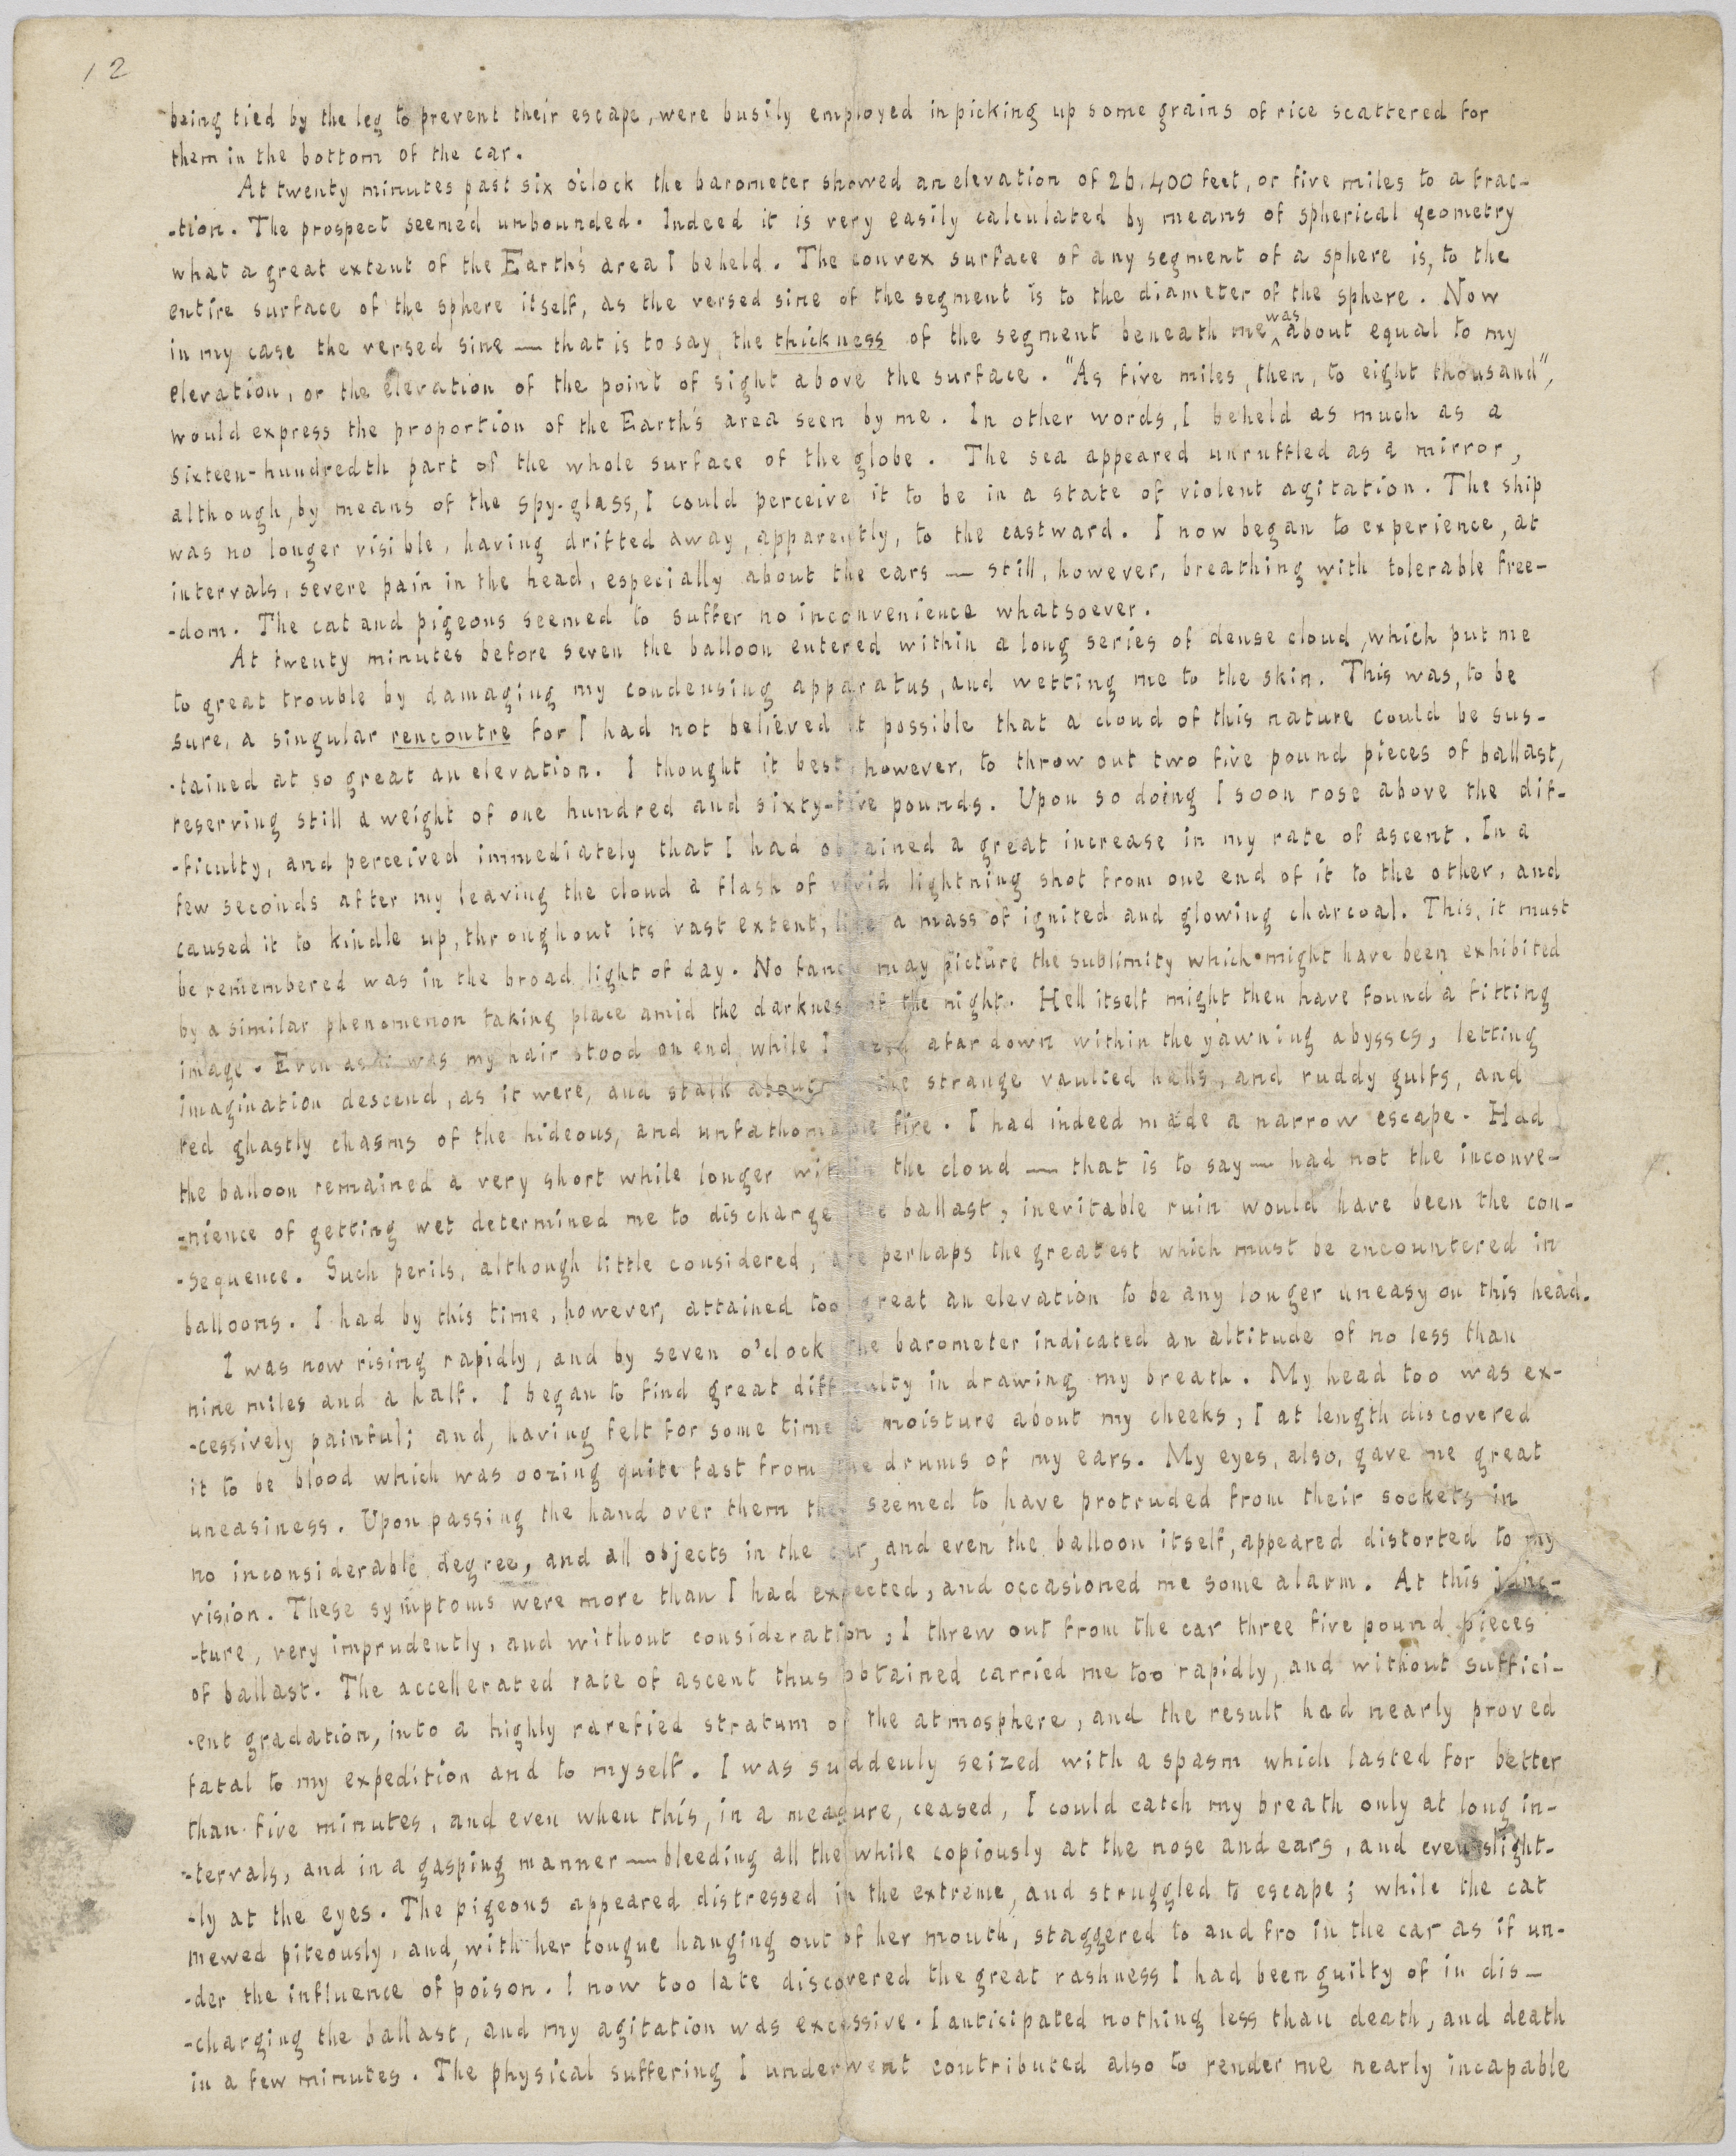 12
being tied by the leg to prevent their escape, were busily employed in picking up some grains of rice scattered for
them in the bottom of the car.
At twenty minutes past six o'clock the barometer showed an elevation of 26,400 feet, or five miles to a frac-
-tion. The prospect seemed unbounded. Indeed it is very easily calculated by means of spherical geometry
what a great extent of the Earth's area I beheld. The convex surface of any segment of a sphere is, to the
entire surface of the sphere itself, as the versed sine of the segment is to the diameter of the sphere. Now
in my case the versed sine — that is to say, the thickness of the segment beneath me was about equal to my
elevation, or the elevation of the point of sight above the surface. "As five miles, then, to eight thousand",
would express the proportion of the Earth's area seen by me. In other words, I beheld as much as a
sixteen-hundredth part of the whole surface of the globe. The sea appeared unruffled as a mirror,
although, by means of the spy-glass, I could perceive it to be in a state of violent agitation. The ship
was no longer visible, having drifted away, apparently, to the eastward. I now began to experience, at
intervals, severe pain in the head, especially about the ears — still, however, breathing with tolerable free-
-dom. The cat and pigeons seemed to suffer no inconvenience whatsoever.
At twenty minutes before seven the balloon entered within a long series of dense cloud, which put me
to great trouble by damaging my condensing apparatus, and wetting me to the skin. This was, to be
sure, a singular rencontre for I had not believed it possible that a cloud of this nature could be sus-
-tained at so great an elevation. I thought it best, however, to throw out two five pound pieces of ballast,
reserving still a weight of one hundred and sixty-five pounds. Upon so doing I soon rose above the dif-
-ficulty, and perceived immediately that I had obtained a great increase in my rate of ascent. In a
few seconds after my leaving the cloud a flash of vivid lightning shot from one end of it to the other, and
caused it to kindle up, throughout its vast extent, like a mass of ignited and glowing charcoal. This, it must
be remembered was in the broad light of day. No fancy may picture the sublimity which might have been exhibited
by a similar phenomenon taking place amid the darkness of the night. Hell itself might then have found a fitting
image. Even as it was my hair stood on end, while I gazed afar down within the yawning abysses, letting
imagination descend, as it were, and stalk about in the strange vaulted halls, and ruddy gulfs, and
red ghastly chasms of the hideous, and unfathomable fire. I had indeed made a narrow escape. Had
the balloon remained a very short while longer within the cloud — that is to say — had not the inconve-
-nience of getting wet determined me to discharge the ballast, inevitable ruin would have been the con-
-sequence. Such perils, although little considered, are perhaps the greatest which must be encountered in
balloons. I had by this time, however, attained too great an elevation to be any longer uneasy on this head.
I was now rising rapidly, and by seven o'clock the barometer indicated an altitude of no less than
nine miles and a half. I began to find great difficulty in drawing my breath. My head too was ex-
-cessively painful; and, having felt for some time a moisture about my cheeks, I at length discovered
it to be blood which was oozing quite fast from the drums of my ears. My eyes, also, gave me great
uneasiness. Upon passing the hand over them they seemed to have protruded from their sockets in
no inconsiderable degree, and all objects in the car, and even the balloon itself, appeared distorted to my
vision. These symptoms were more than I had expected, and occasioned me some alarm. At this junc-
-ture, very imprudently, and without consideration, I threw out from the car three five pound pieces
of ballast. The accellerated rate of ascent thus obtained carried me too rapidly, and without suffici-
-ent gradation, into a highly rarefied stratum of the atmosphere, and the result had nearly proved
fatal to my expedition and to myself. I was suddenly seized with a spasm which lasted for better
than five minutes, and even when this, in a measure, ceased, I could catch my breath only at long in-
-tervals, and in a gasping manner — bleeding all the while copiously at the nose and ears, and even slight-
-ly at the eyes. The pigeons appeared distressed in the extreme, and struggled to escape; while the cat
mewed piteously, and, with her tongue hanging out of her mouth, staggered to and fro in the car as if un-
-der the influence of poison. I now too late discovered the great rashness I had been guilty of in dis-
-charging the ballast, and my agitation was excessive. I anticipated nothing less than death, and death
in a few minutes. The physical suffering I underwent contributed also to render me nearly incapable